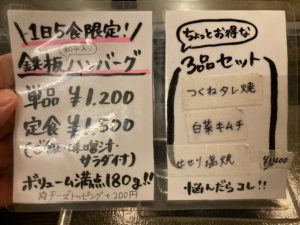 1日5食限定!
和牛入り
鉄板ハンバーグ
単品 ¥1.200
定食 ¥1.500
(ご飯・味噌汁・
サラダ付)
ボリューム満点180g!!
※チーズトッピング+200円
ちょっとお得な
3品セット
つくねタレ焼
白菜キムチ
せせり塩焼
¥1,400
悩んだらコレ!!